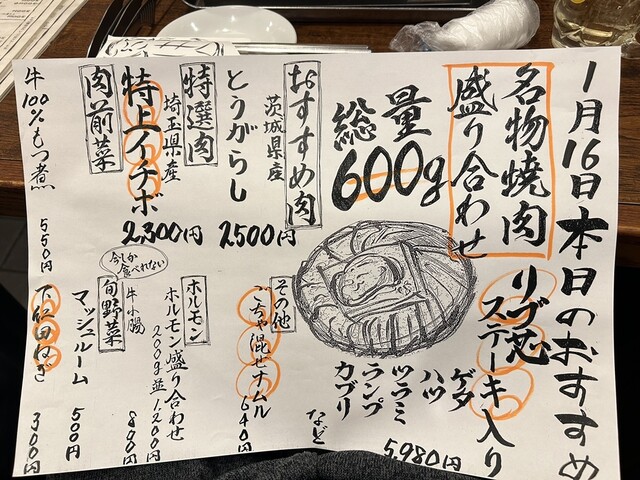 1月16日本日のおすすめ
名物焼肉
盛り合わせ
リブ芯
ステーキ入り
総量
600g
ゲタ
ハツ
ツラミ
ランプ
カブリ
など
5,980円
おすすめ肉
茨城県産
とうがらし
2500円
特選肉
埼玉県産
特上イチボ
2,300円
肉前菜
牛100%もつ煮
550円
その他
ごちゃ混ぜナムル
640円
ホルモン
ホルモン盛り合わせ
200g並1,200円
牛小腸
800円
今しか
食べれない
旬野菜
マッシュルーム
500円
下仁田ねぎ
300円